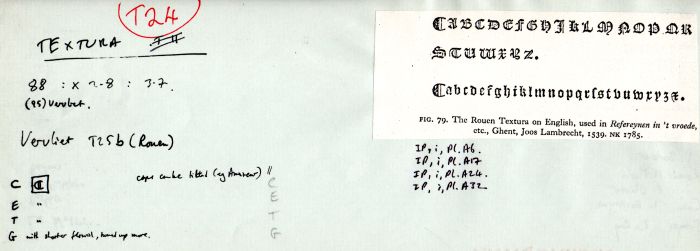 T24
TEXTURA
88 : x 2.8 : 3.7.
(95) Vervliet.
Vervliet T25b (Rouen)
caps can be tilted (eg Answer) //
C C C
E " E
T " T
G with shorter flourish, turned up more. G
CABCDEFGHIJKLMNOPQR
STUWXYZ.
Cabcdefghiklmnopqrſstvuwxyzꝫ.
FIG. 79. The Rouen Textura on English, used in Refereynen in 't vroede,
etc., Ghent, Joos Lambrecht, 1539. NK 1785.
IP, i, Pl. A6.
IP, i, Pl. A17
IP, i, Pl. A24.
IP, i, Pl. A32